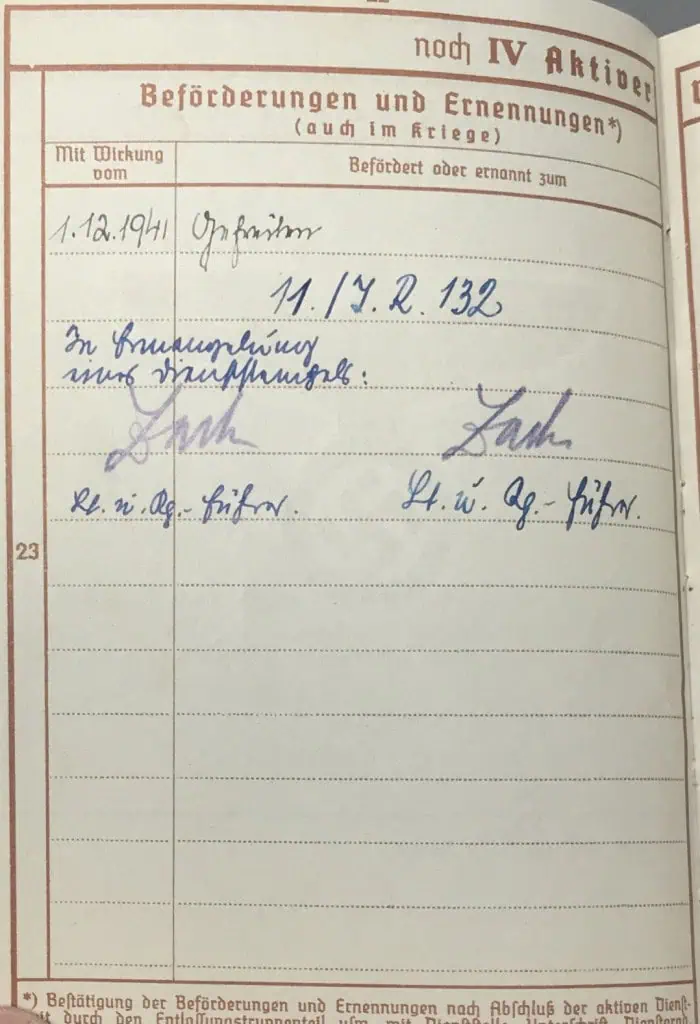 noch IV Aktiver
Beförderungen und Ernennungen*)
(auch im Kriege)
Mit Wirkung vom
Befördert oder ernannt zum
1.12.1941 Gefreiten
11./J.R. 132
In Ermangelung
eines Dienststempels:
Lt. u. Kp.-Führer. Lt. u. Kp.-Führer.
23
*) Bestätigung der Beförderungen und Ernennungen nach Abschluß der aktiven Dienst-
durch den Entlassungstruppenteil usw. mit